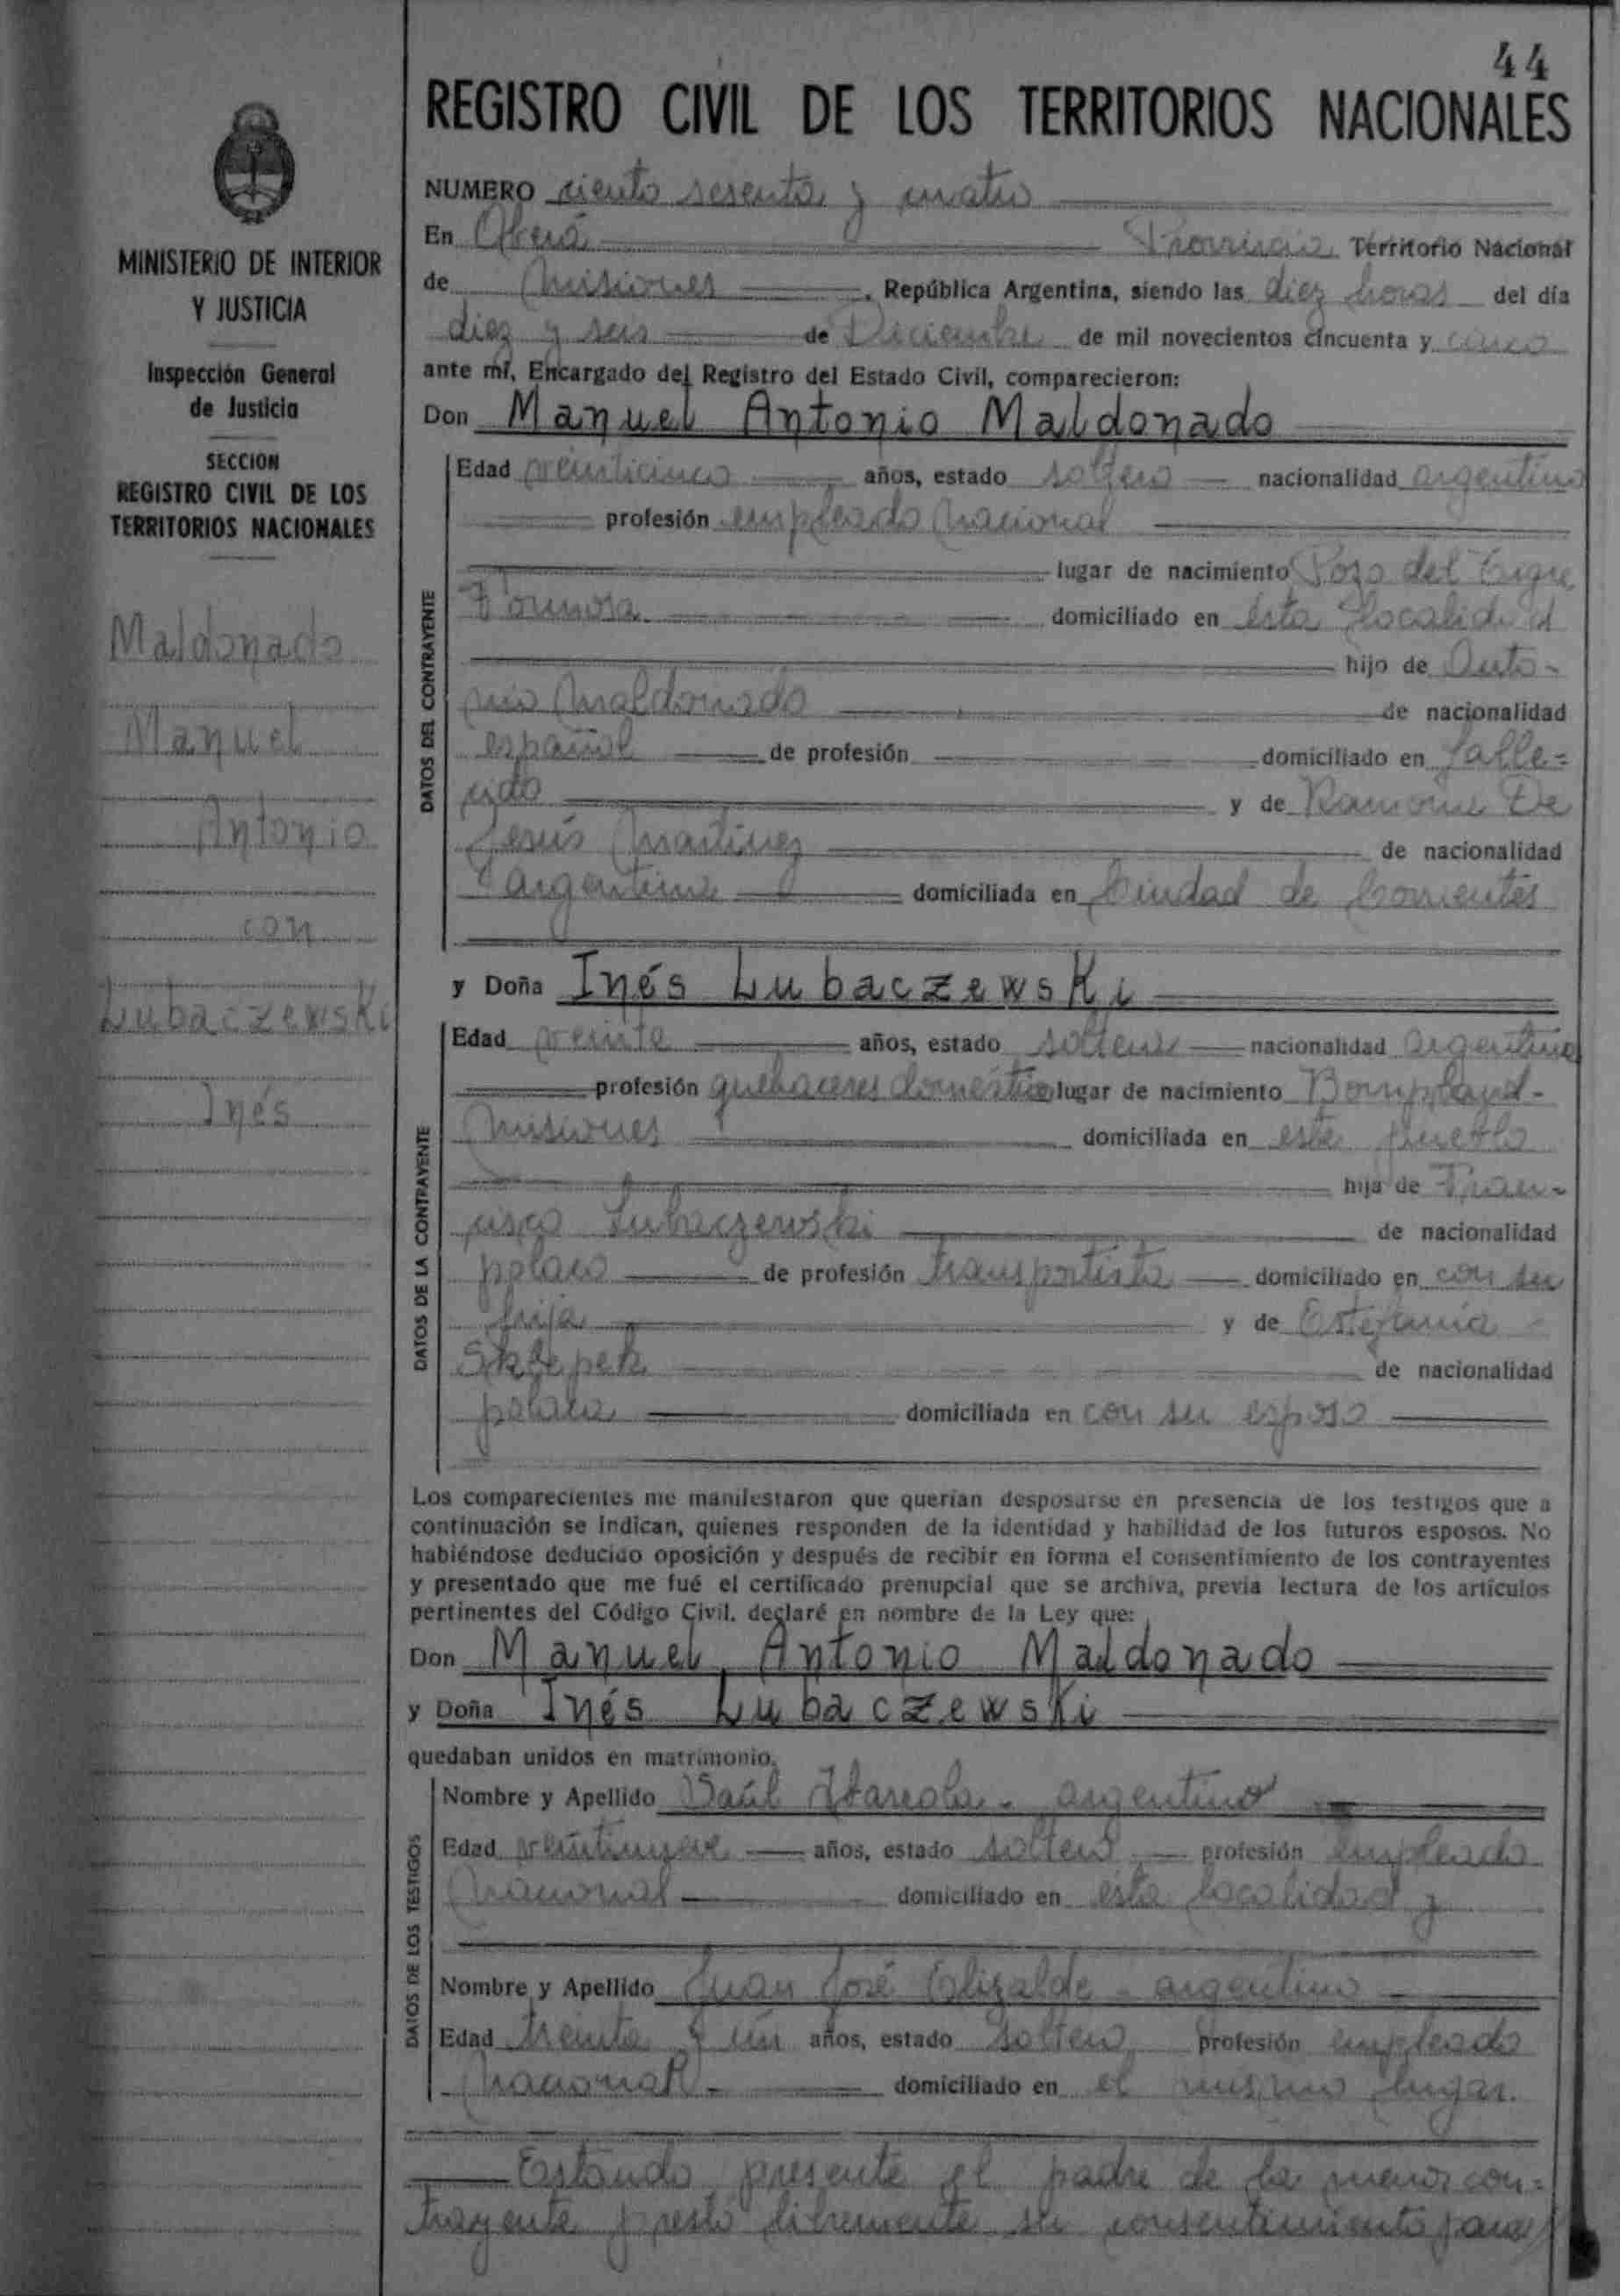 44
REGISTRO CIVIL DE LOS TERRITORIOS NACIONALES
MINISTERIO DE INTERIOR
Y JUSTICIA
Inspección General
de Justicia
SECCION
REGISTRO CIVIL DE LOS
TERRITORIOS NACIONALES
Maldonado
Manuel
Antonio
con
Lubaczewski
Inés
NUMERO ciento sesenta y cuatro
En Oberá Provincia Territorio Nacional
de Misiones, República Argentina, siendo las diez horas del día
diez y seis de Diciembre de mil novecientos cincuenta y cinco
ante mí, Encargado del Registro del Estado Civil, comparecieron:
Don Manuel Antonio Maldonado
DATOS DEL CONTRAYENTE
Edad veinticinco años, estado soltero nacionalidad argentino
profesión empleado nacional
lugar de nacimiento Pozo del Tigre
Formosa domiciliado en esta localidad
hijo de Anto-
nio Maldonado de nacionalidad
español de profesión domiciliado en falle=
cido y de Ramona De
Jesús Martínez de nacionalidad
argentina domiciliada en Ciudad de Corrientes
y Doña Inés Lubaczewski
DATOS DE LA CONTRAYENTE
Edad veinte años, estado soltera nacionalidad argentina
profesión quehaceres domésticos lugar de nacimiento Bompland-
Misiones domiciliada en este pueblo
hija de Fran-
cisco Lubaczewski de nacionalidad
polaco de profesión transportista domiciliado en con su
hija y de Estefanía
Sklepek de nacionalidad
polaca domiciliada en con su esposo
Los comparecientes me manifestaron que querían desposarse en presencia de los testigos que a
continuación se indican, quienes responden de la identidad y habilidad de los futuros esposos. No
habiéndose deducido oposición y después de recibir en forma el consentimiento de los contrayentes
y presentado que me fué el certificado prenupcial que se archiva, previa lectura de los artículos
pertinentes del Código Civil, declaré en nombre de la Ley que:
Don Manuel Antonio Maldonado
y Doña Inés Lubaczewski
quedaban unidos en matrimonio.
DATOS DE LOS TESTIGOS
Nombre y Apellido Saúl - argentino
Edad veintinueve años, estado soltero profesión empleado
nacional domiciliado en esta localidad y
Nombre y Apellido Juan José Elizalde - argentino
Edad treinta y un años, estado soltero profesión empleado
nacional - domiciliado en el mismo lugar.
Estando presente el padre de la menor con=
trayente prestó libremente su consentimiento para